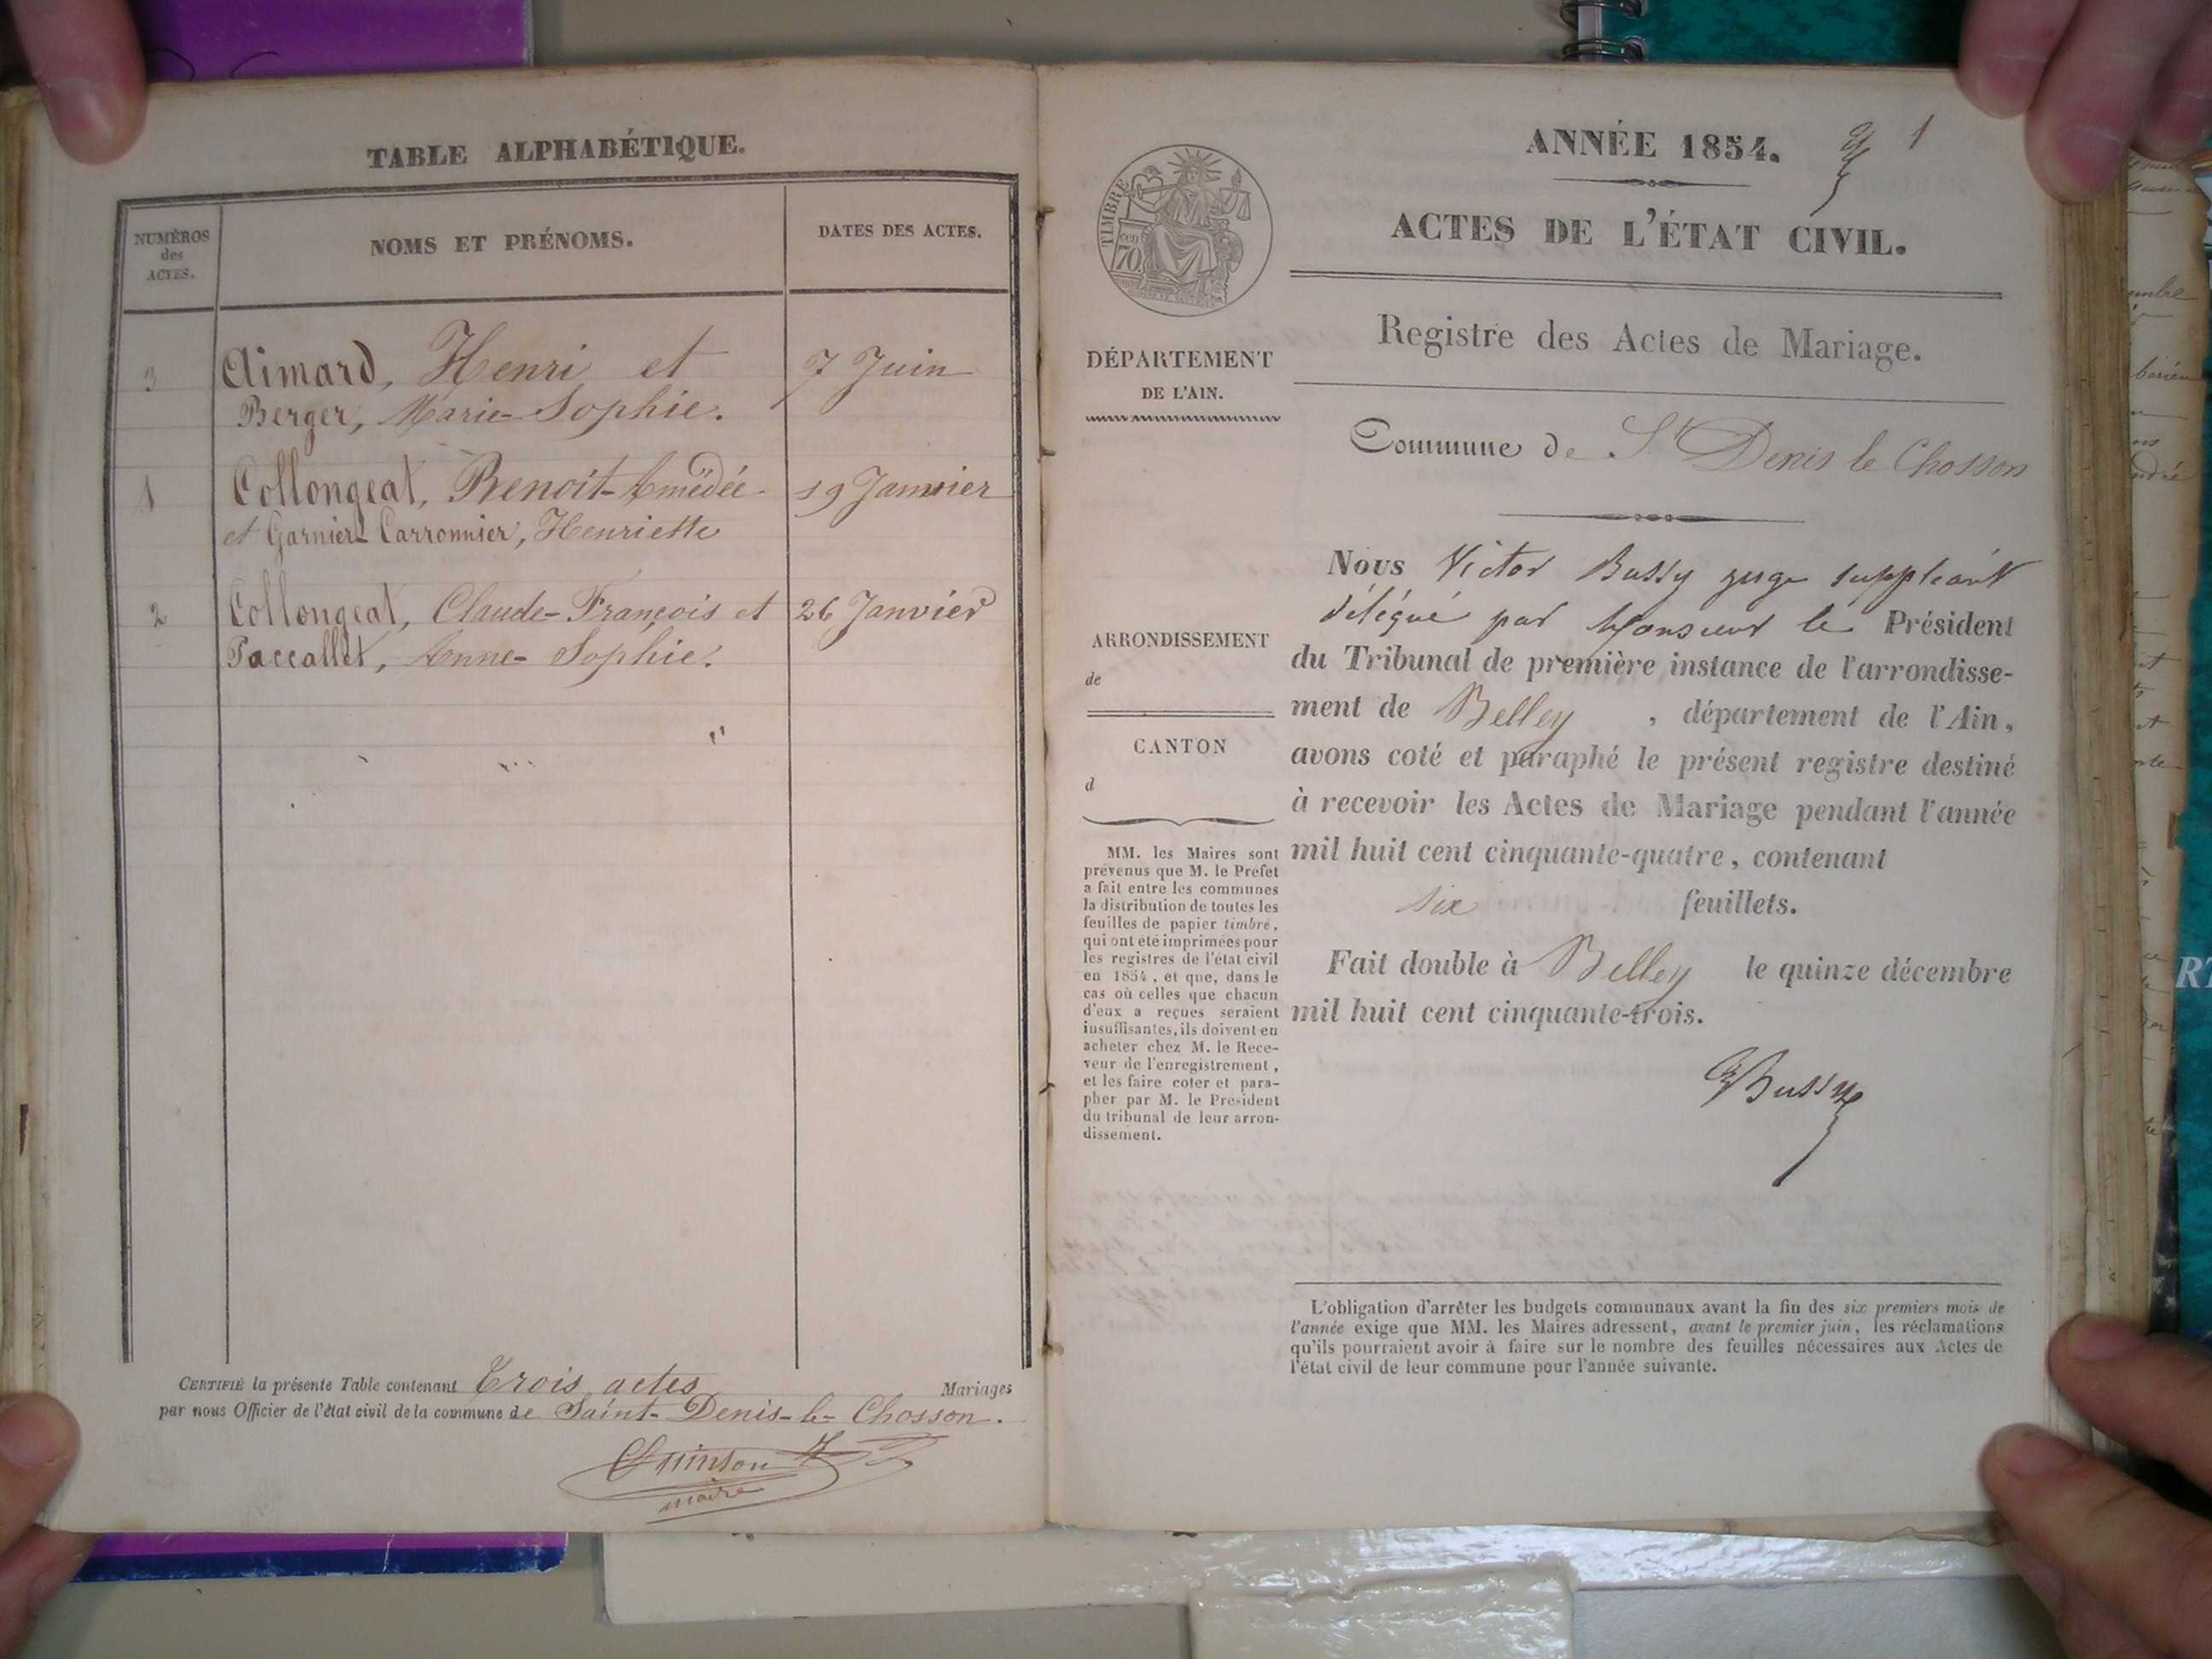 TABLE ALPHABÉTIQUE.
NUMÉROS
des
ACTES.
NOMS ET PRÉNOMS.
DATES DES ACTES.
3 Aimard, Henri et 7 Juin
Berger, Marie-Sophie.
1 Collongeat, Benoit-Amédée 19 Janvier
et Garnier-Carronnier, Henriette
2 Collongeat, Claude-François et 26 Janvier
Paccallet, Anne-Sophie.
CERTIFIÉ la présente Table contenant Trois actes Mariages
par nous Officier de l'état civil de la commune de Saint-Denis-le-Chosson.
Quinson
maire
ANNÉE 1854. 1
ACTES DE L'ÉTAT CIVIL.
TIMBRE
70 cen
Registre des Actes de Mariage.
DÉPARTEMENT
DE L'AIN.
Commune de St Denis le Chosson
ARRONDISSEMENT
de
CANTON
d
MM. les Maires sont
prévenus que M. le Préfet
a fait entre les communes
la distribution de toutes les
feuilles de papier timbré,
qui ont été imprimées pour
les registres de l'état civil
en 1854, et que, dans le
cas où celles que chacun
d'eux a reçues seraient
insuffisantes, ils doivent en
acheter chez M. le Rece-
veur de l'enregistrement,
et les faire coter et para-
pher par M. le Président
du tribunal de leur arron-
dissement.
Nous Victor Bussy juge suppléant
délégué par Monsieur le Président
du Tribunal de première instance de l'arrondisse-
ment de Belley, département de l'Ain,
avons coté et paraphé le présent registre destiné
à recevoir les Actes de Mariage pendant l'année
mil huit cent cinquante-quatre, contenant
six feuillets.
Fait double à Belley le quinze décembre
mil huit cent cinquante-trois.
Bussy
L'obligation d'arrêter les budgets communaux avant la fin des six premiers mois de
l'année exige que MM. les Maires adressent, avant le premier juin, les réclamations
qu'ils pourraient avoir à faire sur le nombre des feuilles nécessaires aux Actes de
l'état civil de leur commune pour l'année suivante.